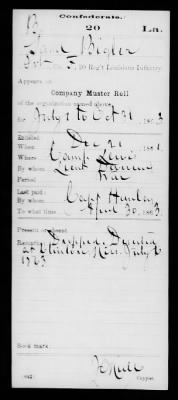 Confederate.
B 20 La.
Bigler
Pvt Co. F, 20 Reg't Louisiana Infantry.
Appears on
Company Muster Roll
of the organization named above,
for July 1 to Oct 31, 1863
Enlisted:
When Dec 21, 1861
Where Camp Lewis
By whom Lieut
Period War
Last paid:
By whom Capt
To what time April 30, 1863
Present or absent
Remarks: Dropped. Deserted
at July
1863
Book mark:
(642) Copyist.